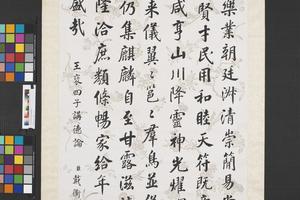 樂業朝廷淑清崇簡易
賢才民用和睦天符既
咸亨山川降靈神光耀
來儀翼〻邕〻羣鳥並從
仍集麒麟自至甘露滋
隆洽庶類條暢家給年
盛哉
王襃四子講德論
臣戴衢